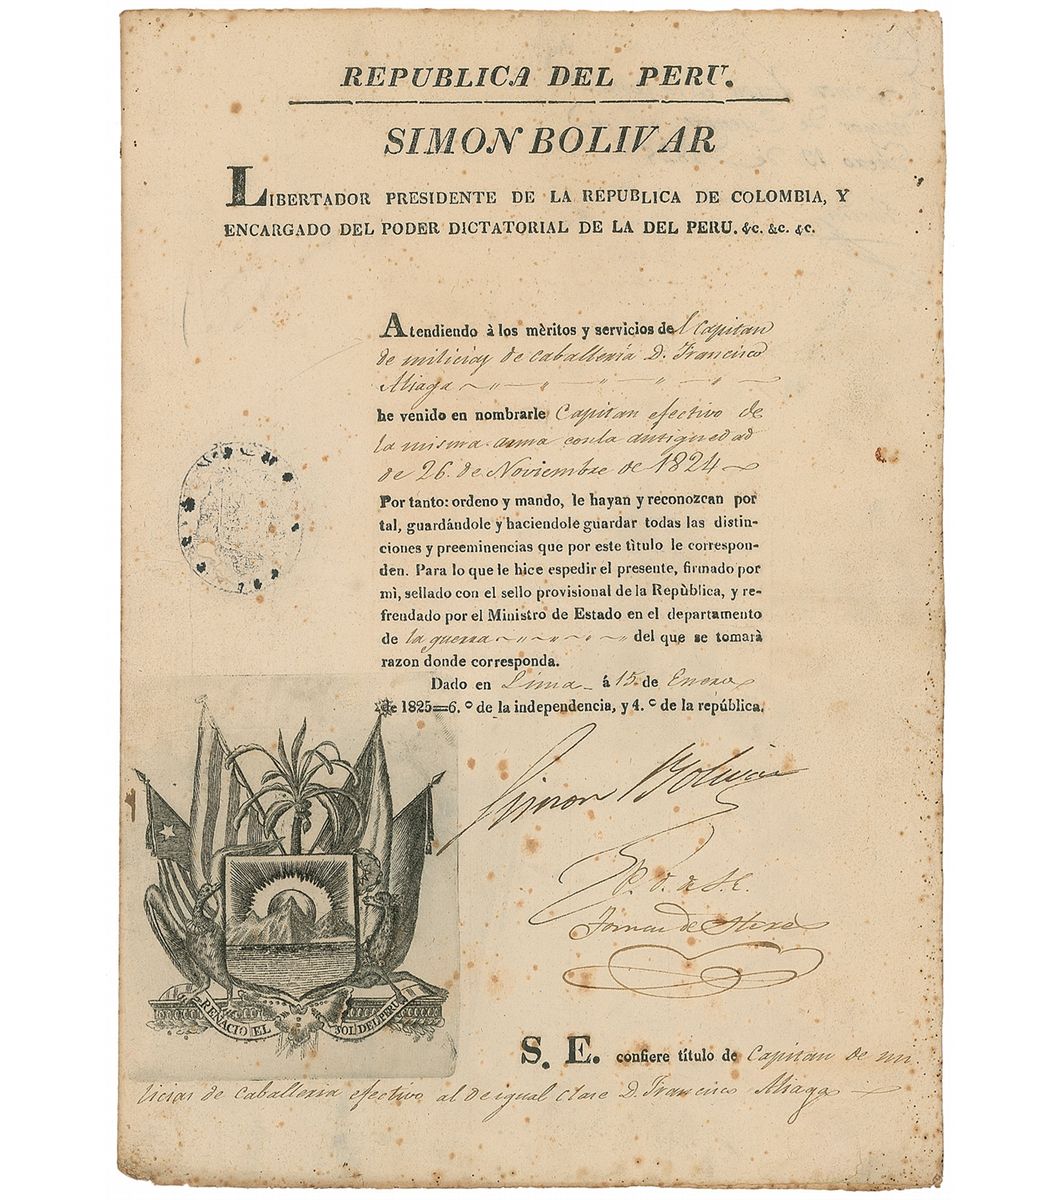 REPUBLICA DEL PERU.
SIMON BOLIVAR
LIBERTADOR PRESIDENTE DE LA REPUBLICA DE COLOMBIA, Y
ENCARGADO DEL PODER DICTATORIAL DE LA DEL PERU. &c. &c. &c.
Atendiendo à los mèritos y servicios del Capitan
de milicias de caballeria D. Francisco
Aliaga
he venido en nombrarle Capitan efectivo de
la misma arma con la antiguedad
de 26 de Noviembre de 1824
Por tanto: ordeno y mando, le hayan y reconozcan por
tal, guardándole y haciendole guardar todas las distin-
ciones y preeminencias que por este tìtulo le correspon-
den. Para lo que le hice espedir el presente, firmado por
mì, sellado con el sello provisional de la Repùblica, y re-
frendado por el Ministro de Estado en el departamento
de la guerra del que se tomarà
razon donde corresponda.
Dado en Lima á 15 de Enero
de 1825=6.º de la independencia, y 4.º de la repùblica.
Simon Bolivar
P. O. de S. E.
Tomas de Heres
RENACIO EL SOL DEL PERU
S. E. confiere tìtulo de Capitan de mi
licias de caballeria efectivo al de igual clase D. Francisco Aliaga